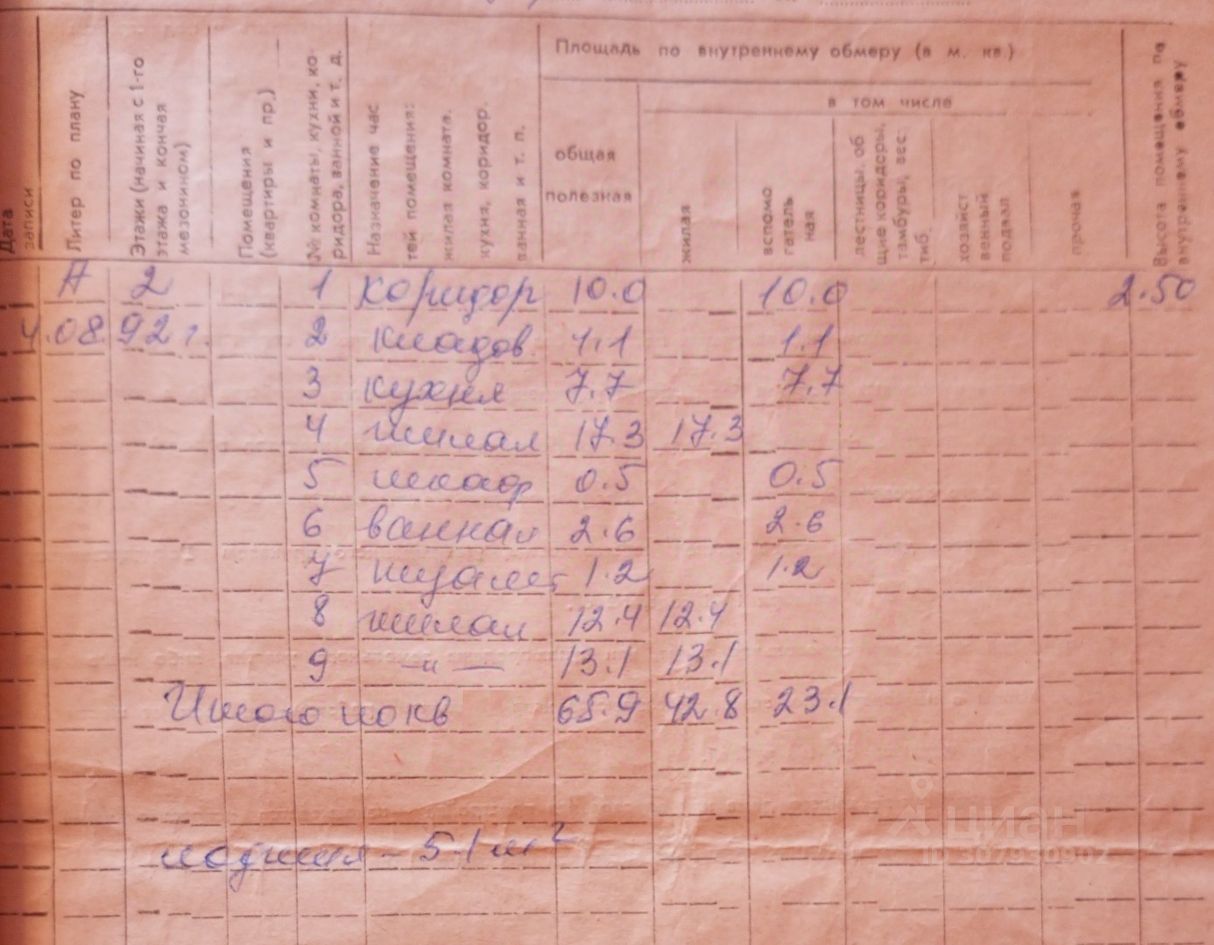 Площадь по внутреннему обмеру (в м. кв.)
в том числе
Дата
записи
Литер по плану
Этажи (начиная с 1-го
этажа и кончая
мезонином)
Помещения
(квартиры и пр.)
№ комнаты, кухни, ко-
ридора, ванной и т. д.
Назначение час
тей помещения:
жилая комната.
кухня, коридор.
ванная и т. п.
общая
полезная
жилая
вспомо
гатель
ная
лестницы, об
щие коридоры,
тамбуры, вес-
тиб.
хозяйст
венный
подвал
прочая
Высота помещения по
внутреннему обмеру
А 2 1 коридор 10.0 10.0 2.50
4.08 92 г. 2 кладов 1.1 1.1
3 кухня 7.7 7.7
4 жилая 17.3 17.3
5 шкаф 0.5 0.5
6 ванная 2.6 2.6
7 туалет 1.2 1.2
8 жилая 12.4 12.4
9 –"– 13.1 13.1
Итого по кв 65.9 42.8 23.1
лоджия – 5.1 м²
циан